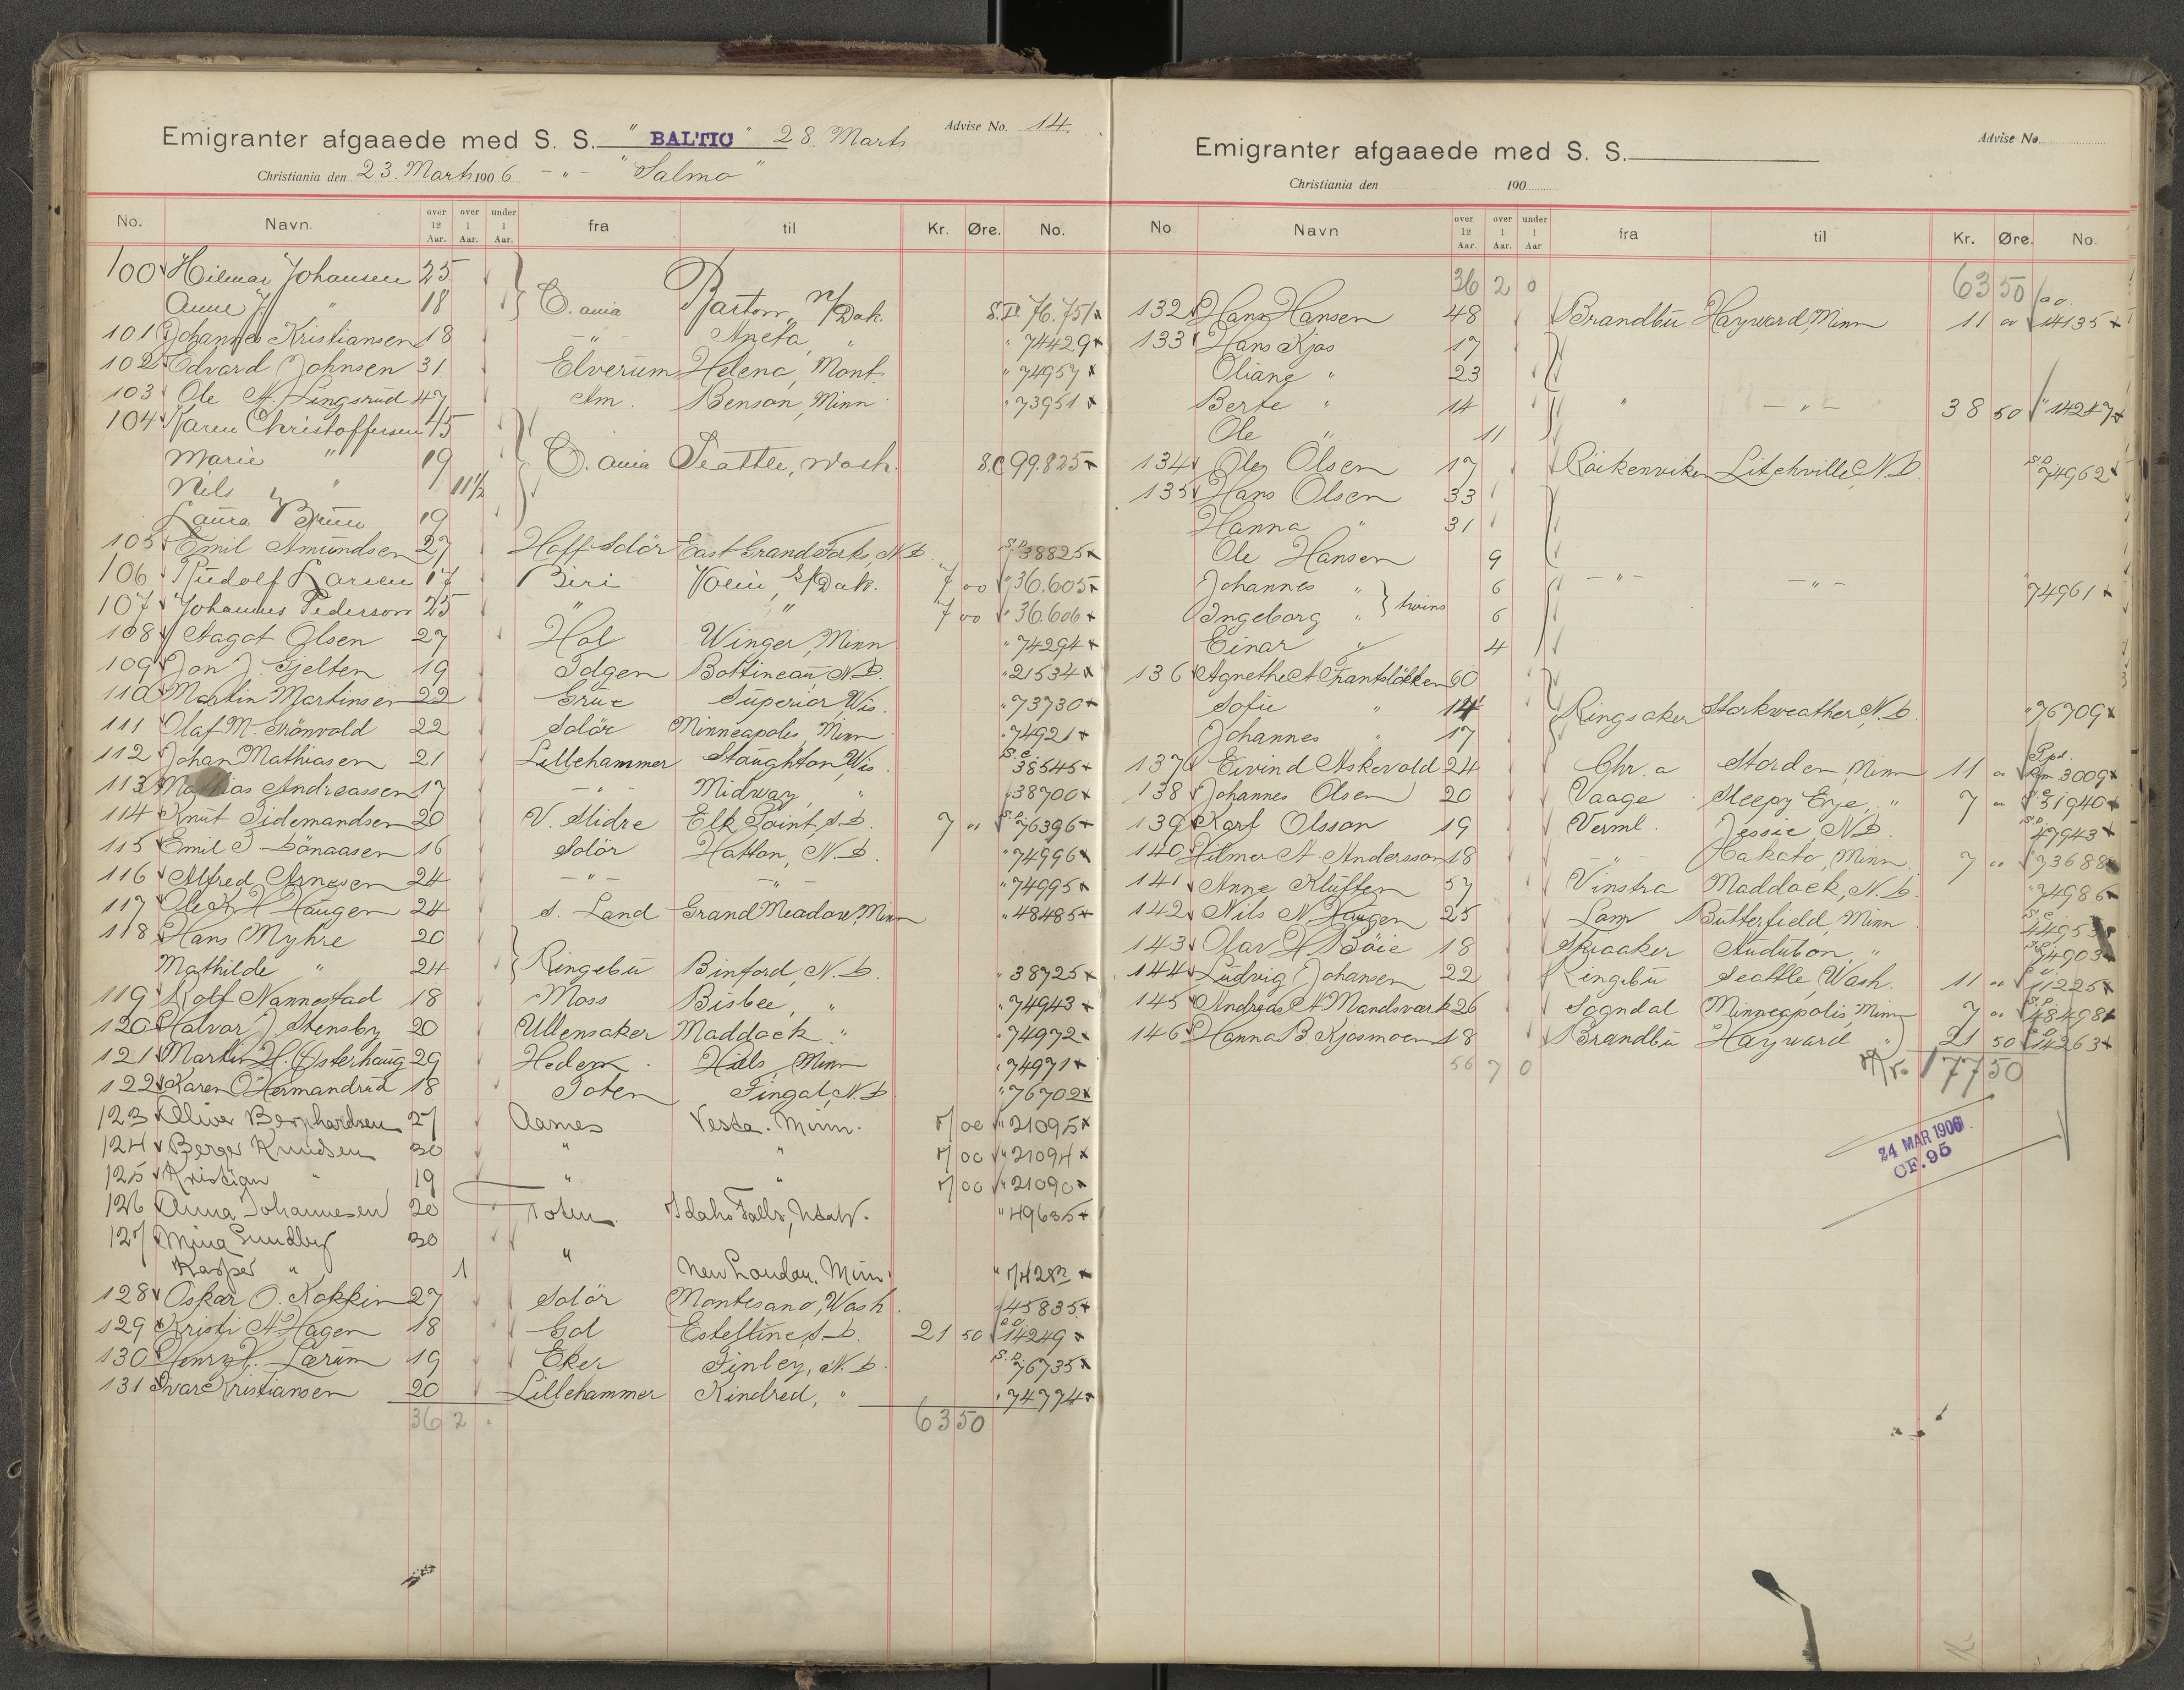 Advise No. 14.
Emigranter afgaaede med S. S. "BALTIC" 28. Marts
Christiania den 23. Marts 1906 - " - "Salmo"
No. Navn. over 12 Aar. over 1 Aar. under 1 Aar. fra til Kr. Øre. No.
100 Hilmar Johansen 25
Anne J. " 18 C.ania Barton, N/Dak. S.P. 76.751
101 Johannes Kristiansen 18 - " - Aneta " " 74429
102 Edvard Johnsen 31 Elverum Helena, Mont. " 74957
103 Ole A. Lingsrud 47 Am. Benson, Minn. " 73951
104 Karen Christoffersen 45
Marie " 19 C.ania Seattle, Wash. S.C 99.825
Nils " 11 1/2
Laura Bruun 19
105 Emil Amundsen 27 Hoff Solör East Grand Forks, N.D. S.P. 38825
106 Rudolf Larsen 17 Biri Volin, S/Dak. 7 00 " 36.605
107 Johannes Pederson 25 " " 7 00 " 36.606
108 Aagot Olsen 27 Hol Winger, Minn " 74294
109 Jon J. Gjelten 19 Tolgen Bottineau, N.D. " 21534
110 Martin Martinsen 22 Grue Superior Wis. " 73730
111 Olaf M. Grönvold 22 Solör Minneapolis, Minn " 74921
112 Johan Mathiasen 21 Lillehammer Stoughton, Wis. S.C. 38545
113 Mathias Andreassen 17 - " - Midway, " 38700
114 Knut Tidemandsen 20 V. Slidre Elk Point, S.D. 7 " S.P. 76396
115 Emil T. Bönaasen 16 Solör Hatton, N.D. " 74996
116 Alfred Arnesen 24 - " - - " - " 74995
117 Ole A. H. Haugen 24 S. Land Grand Meadow, Minn " 48485
118 Hans Myhre 20
Mathilde " 24 Ringebu Binford, N.D. " 38725
119 Rolf Nannestad 18 Moss Bisbee, " " 74943
120 Halvar J. Stensby 20 Ullensaker Maddock " " 74972
121 Martin H. Österhaug 29 Hedem. Hills, Minn " 74971
122 Karen O. Hermandrud 18 Toten Fingal, N.D. " 76702
123 Oliver Bernhardsen 27 Aarnes Vesta. Minn. 7 00 " 21095
124 Berger Knudsen 30 " " 7 00 " 21094
125 Kristian " 19 " " 7 00 " 21090
126 Anna Johannesen 20 Toten. Idaho Falls, Utah. " 49635
127 Mina Sundby 30
Kasper " 1 " New London, Minn. "
128 Oskar O. Kokkin 27 Solör Montesano, Wash. " 45835
129 Kristi A. Hagen 18 Gol Estelline, S.D. 21 50 14249
130 Henry H. Lærum 19 Eker Finley, N.D. S.P. 76735
131 Ivar Kristiansen 20 Lillehammer Kindred, " " 74774
36 2 63 50
Advise No.
Emigranter afgaaede med S. S.
Christiania den 190
No Navn over 12 Aar. over 1 Aar. under 1 Aar fra til Kr. Øre. No.
36 2 0 63 50
132 Hans Hansen 48 Brandbu Hayward, Minn 11 00 a.o. 14135
133 Hans Kjos 17
Oliane " 23
Berte " 14 " - " - 38 50 " 14247
Ole " 11
134 Ole Olsen 17 Röikenviken Litchville, N.D. S.P. 74962
135 Hans Olsen 33
Hanna " 31
Ole Hansen 9
Johannes " 6 - " - - " - 74961
Ingeborg " } twins 6
Einar " 4
136 Agnethe A. Frantslökken 60
Sofie " 14 Ringsaker Starkweather, N.D. " 76709
Johannes " 17
137 Eivind Askevold 24 Chr.a Storden, Minn 11 " 3009
138 Johannes Olsen 20 Vaage Sleepy Eye, " 7 " S.C. 31940
139 Karl Olsson 19 Verml. Jessie, N.D. S.P. 47943
140 Hilmer A. Andersson 18 - " - Hakato, Minn. 7 " 73688
141 Anne Kluften 57 Vinstra Maddock, N.D. " 74986
142 Nils N. Haugen 25 Lom Butterfield, Minn S.C. 44953
143 Olav H. Böie 18 Skaaker Audubon, " S.P. 74903
144 Ludvig Johansen 22 Ringebu Seattle, Wash. 11 " 11225
145 Andreas A. Mandsværk 26 Sogndal Minneapolis, Minn 7 " S.P. 48498
146 Hanna B. Kjosmoen 18 Brandbu Hayward " 21 50 14263
56 7 0 177 50
24 MAR 1906
CF. 95